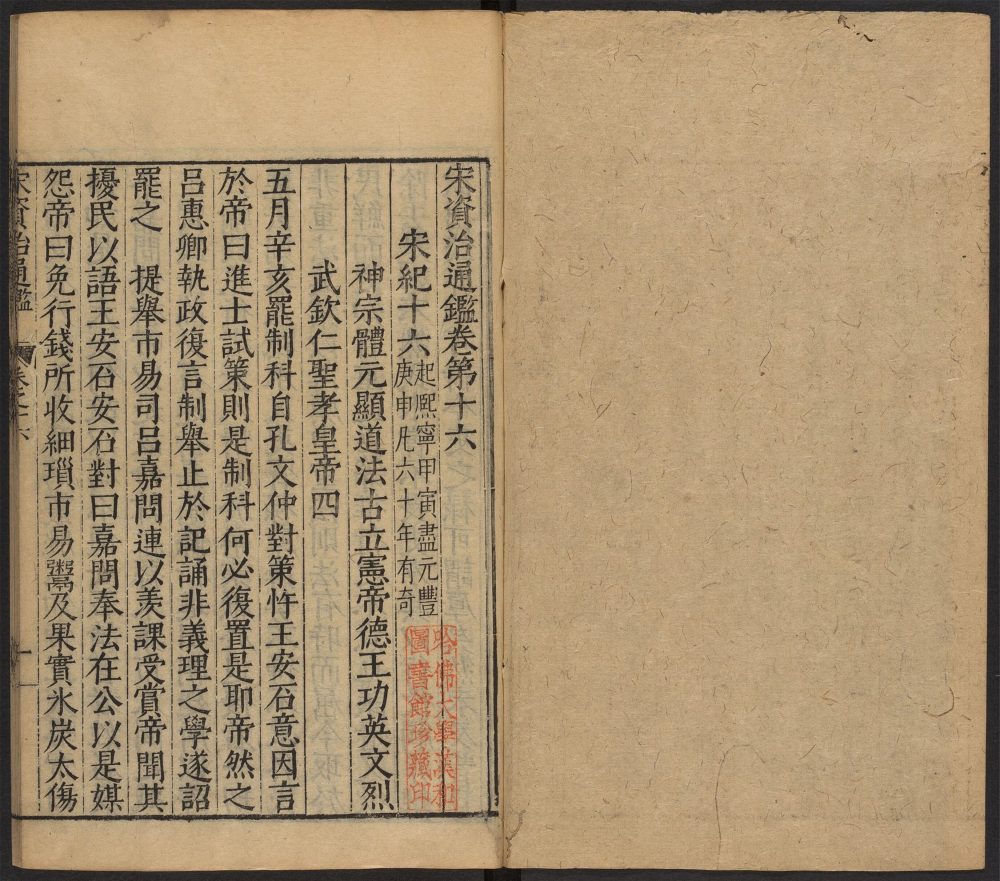 宋資治通鑑卷第十六
宋紀十六起熙寧甲寅盡元豐
庚申凡六十年有奇
神宗體元顯道法古立憲帝德王功英文烈
武欽仁聖孝皇帝四
五月辛亥罷制科自孔文仲對策忤王安石意因言
於帝曰進士試策則是制科何必復置是耶帝然之
呂惠卿執政復言制舉止於記誦非義理之學遂詔
罷之　提舉市易司呂嘉問連以羨課受賞帝聞其
擾民以語王安石安石對曰嘉問奉法在公以是媒
怨帝曰免行錢所收細瑣市易鬻及果實氷炭太傷
宋資治通鑑
卷之十六
一
哈佛大學漢和
圖書館珍藏印